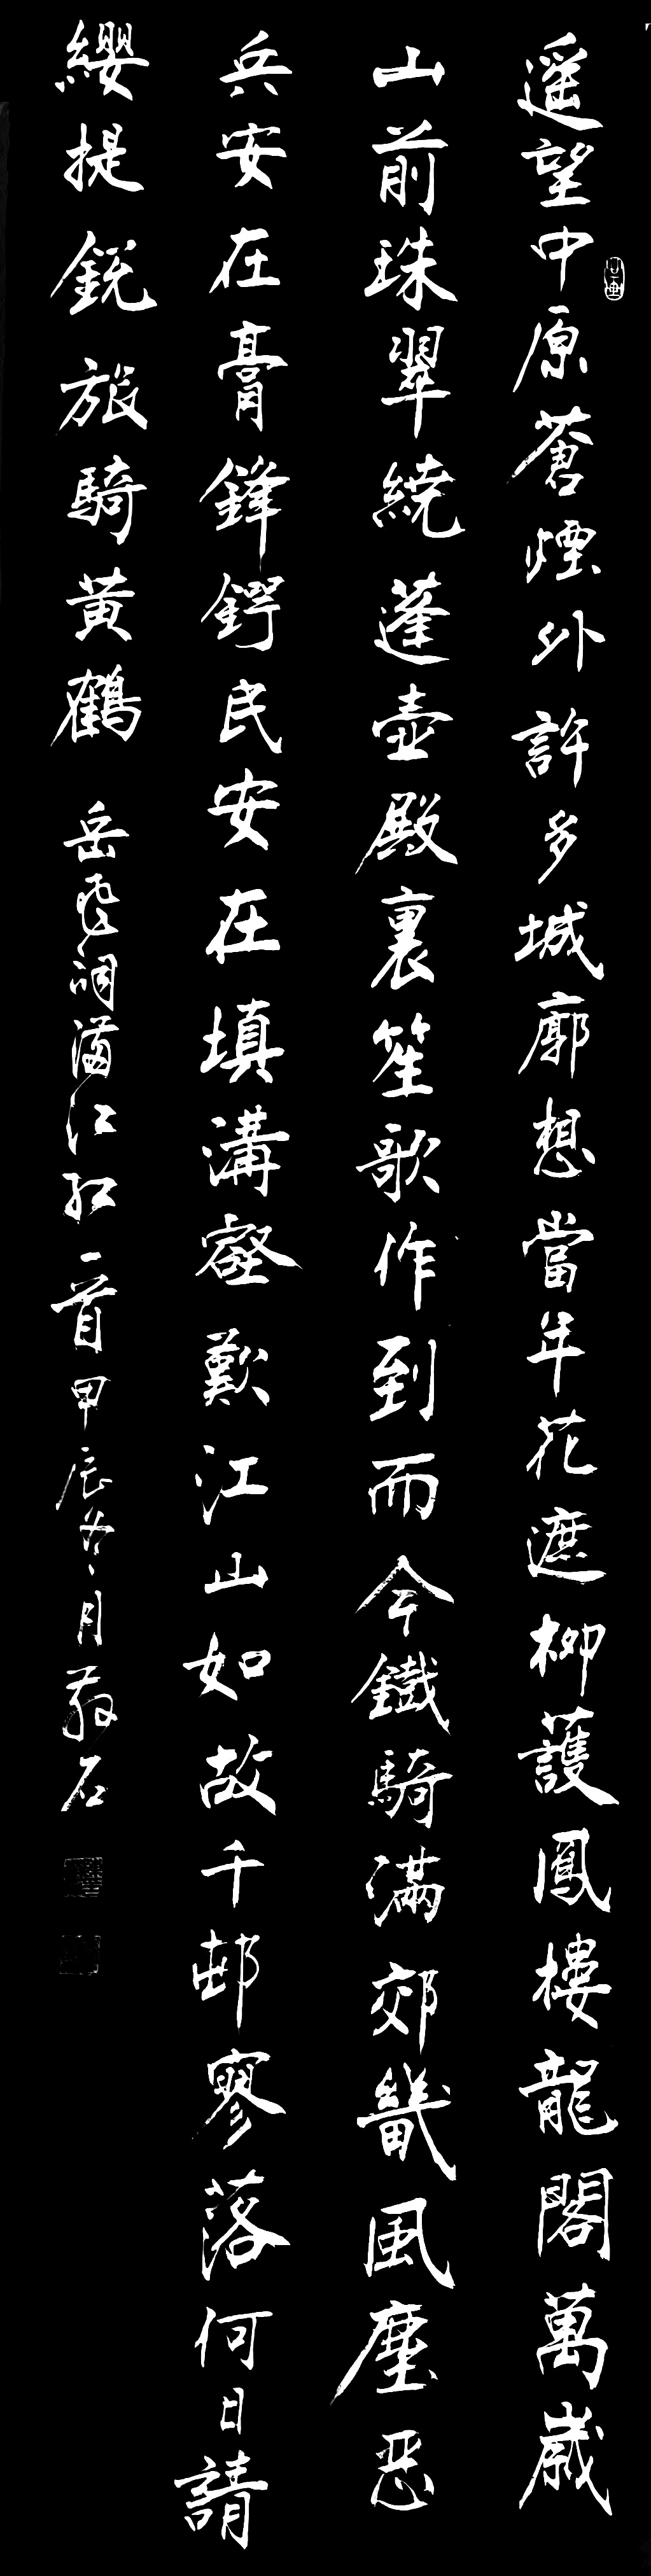 遥望中原蒼煙外許多城廓想當年花遮柳護鳳樓龍閣萬歲
山前珠翠繞蓬壺殿裏笙歌作到而今鐵騎滿郊畿風塵惡
兵安在膏鋒鍔民安在填溝壑歎江山如故千邨寥落何日請
纓提銳旅騎黃鶴
岳飛詞滿江紅一首甲辰冬月 石